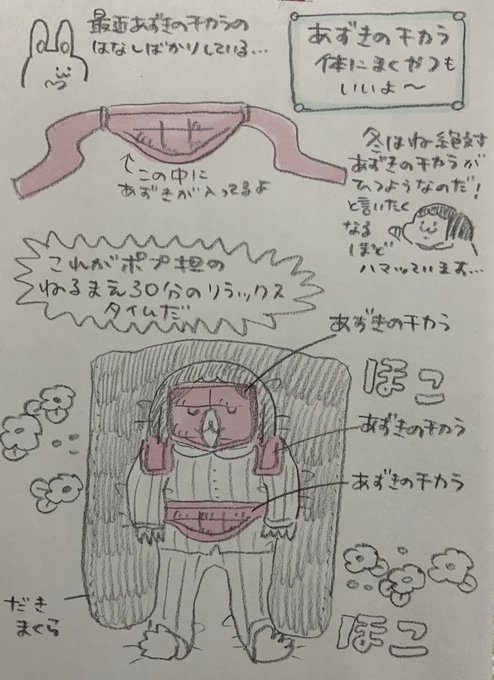 最近あずきのチカラの
はなしばかりしている…
あずきのチカラ
体にまくやつも
いいよ〜
この中に
あずきが入ってるよ
冬はね絶対
あずきのチカラが
ひつようなのだ!
と言いたく
なる
ほど
ハマっています…
これがポプ担の
ねるまえ30分のリラックス
タイムだ
あずきのチカラ
ほこ
あずきのチカラ
あずきのチカラ
だき
まくら
ほこ